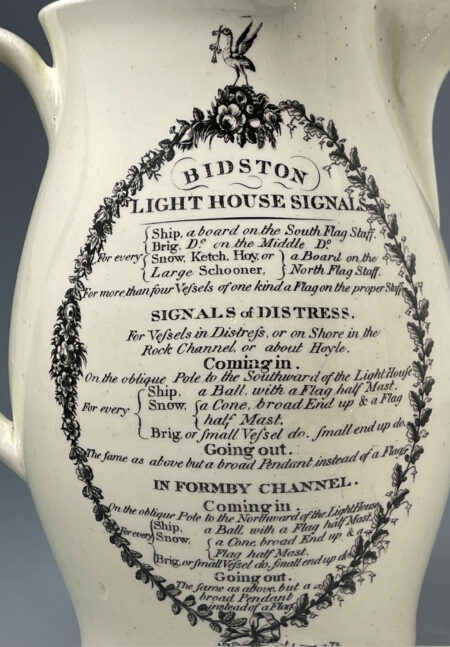 BIDSTON
LIGHT HOUSE SIGNALS
Ship, a board on the South Flag Staff.
Brig, Dº. on the Middle Dº.
For every Snow, Ketch, Hoy, or a Board on the
Large Schooner, North Flag Staff.
For more than four Veſsels of one kind a Flag on the proper Staff
SIGNALS of DISTRESS.
For Veſsels in Diſtreſs, or on Shore in the
Rock Channel, or about Hoyle.
Coming in.
On the oblique Pole to the Southward of the Light House
Ship. a Ball, with a Flag half Mast.
For every Snow, a Cone, broad End up & a Flag
half Mast.
Brig, or ſmall Veſsel do. ſmall end up do.
Going out.
The ſame as above but a broad Pendant instead of a Flag.
IN FORMBY CHANNEL.
Coming in
On the oblique Pole to the Northward of the Light House
Ship. a Ball, with a Flag half Mast.
For every Snow, a Cone, broad End up & a
Flag half Mast.
Brig, or ſmall Veſsel do. ſmall end up do.
Going out.
The ſame as above, but a
broad Pendant
instead of a Flag.